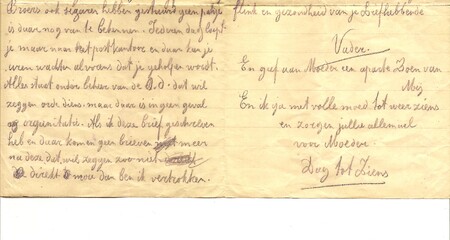 Broers ook sigaren hebben gestuurd geen pakje
is daar nog van te bekennen. Iedren dag loopt
je maar naar het postkantoor en daar kan je
uren wachten alvorens dat je geholpen wordt.
Alles staat onder beheer van de O.D. dat wil
zeggen orde dienst maar daar is in geen geval
organisatie. Als ik deze brief geschreven
heb en daar komen geen brieven meer
na deze dat wil zeggen zoo niet
direkt mooi dan ben ik vertrokken.
flink en gezondheid van je Liefhebbende
Vader.
En geef aan Moeder een aparte Zoen van
Mij
En ik ga met volle moed tot weer ziens
en zorgen jullie allemaal
voor Moeder
Dag tot Ziens